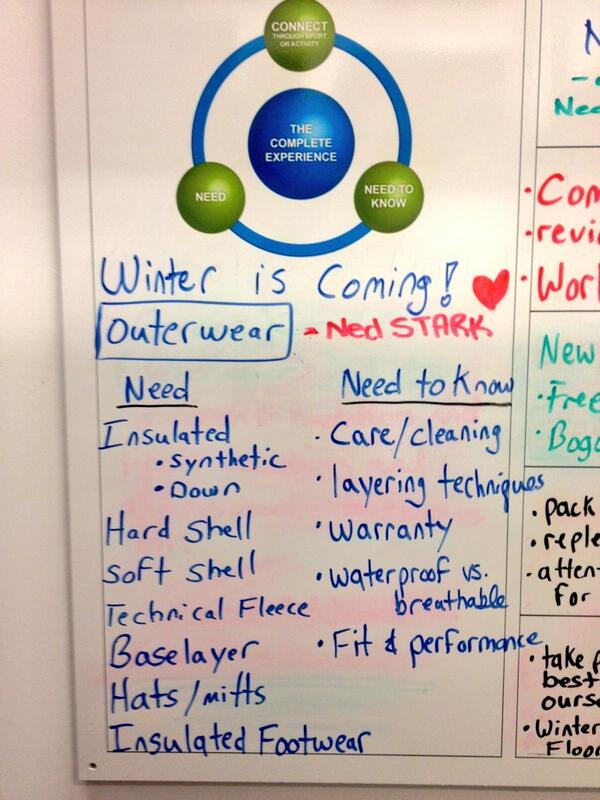 CONNECT
THROUGH SPORT
OR ACTIVITY
THE
COMPLETE
EXPERIENCE
NEED
NEED TO
KNOW
Winter is Coming!
Outerwear
- Ned STARK
Need
Insulated
• Synthetic
• Down
Hard Shell
Soft Shell
Technical Fleece
Baselayer
Hats/mitts
Insulated Footwear
Need to Know
• Care/cleaning
• layering techniques
• Warranty
• waterproof vs.
breathable
• Fit & performance
N
Nee
• Com
• revi
• Worl
New
• Free
• Bogo
• pack
• reple
• atten
for
• take p
best
ourse
• Winter
Floor